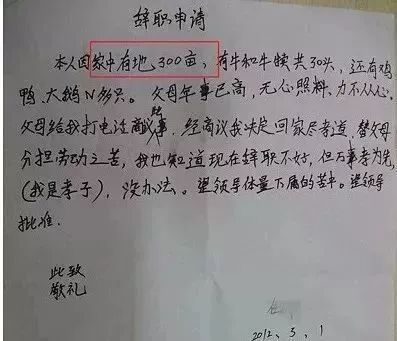 辞职申请
本人因家中有地300亩，有牛和牛犊共30头，还有鸡
鸭、大鹅N多只。父母年事已高，无心照料、力不从心。
父母给我打电话商议此事，经商议我决定回家尽孝道，替父母
分担劳动之苦，我也知道现在辞职不好，但万事孝为先，
(我是孝子)，没办法。望领导体量下属的苦中。望领导
批准.
此致
敬礼
2012、3、1